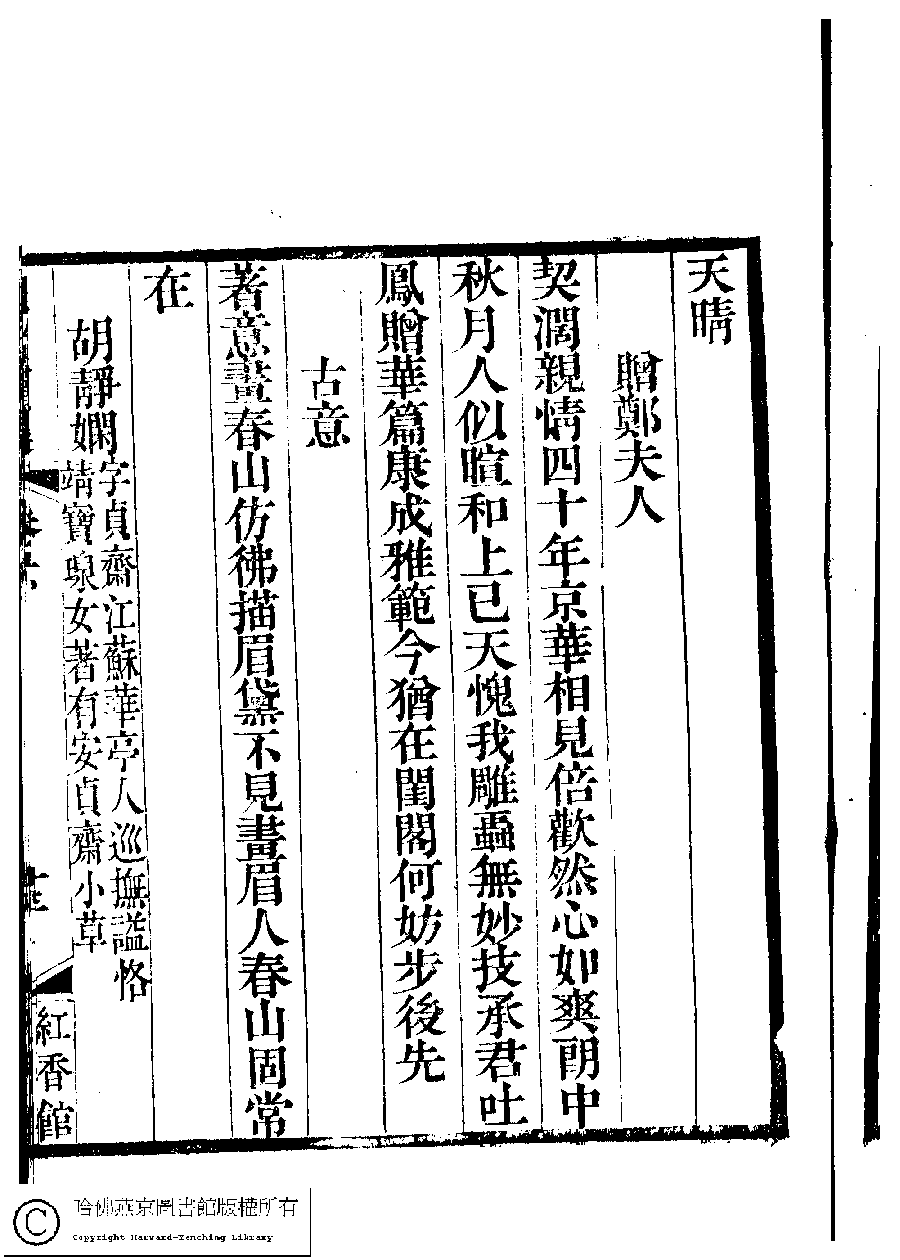 天晴
贈鄭夫人
契濶親情四十年京華相見倍歡然心如爽朗中
秋月人似暄和上巳天愧我雕蟲無妙技承君吐
鳳贈華篇康成雅範今猶在閨閣何妨步後先
古意
著意畫春山仿彿描眉黛不見畫眉人春山固常
在
胡靜嫻字貞齋江蘇華亭人巡撫諡恪
靖寶瑔女著有安貞齋小草
卷六
紅香館
哈佛燕京圖書館版權所有
Copyright Harvard-Yenching Library